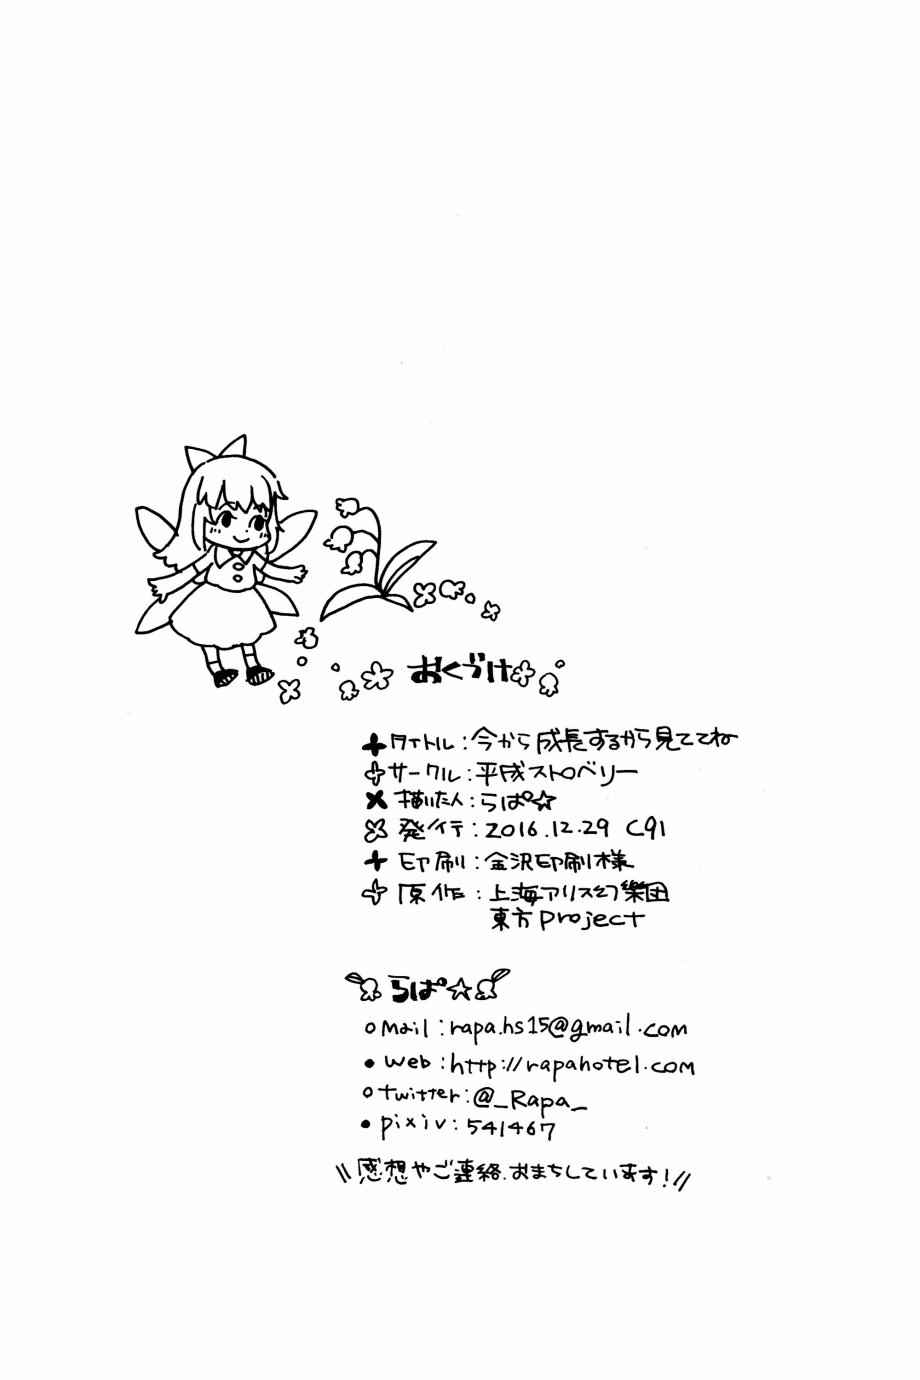 おくづけ
タイトル:今から成長するから見ててね
サークル:平成ストロベリー
描いた人:らぱ☆
発行:2016.12.29 C91
印刷:金沢印刷様
原作:上海アリス幻樂団
東方Project
らぱ☆
Mail:rapa.hs15@gmail.com
web:http://rapahotel.com
twitter:@_Rapa_
pixiv:541467
\\感想やご連絡、おまちしています!//